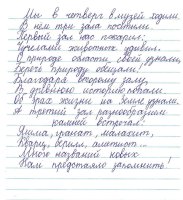 Мы в четверг в музей ходили.
В нём три зала посетили.
Первый зал нас покорил:
Чучелами животных удивил.
О природе области своей узнали,
Беречь природу обещали.
Благодаря второму залу,
В далёкую историю попали.
Об эрах жизни на Земле узнали.
А третий зал разнообразием
камней встречал:
Яшма, гранат, малахит,
Кварц, берилл, аметист...
Много названий новых
Нам предстояло запомнить!